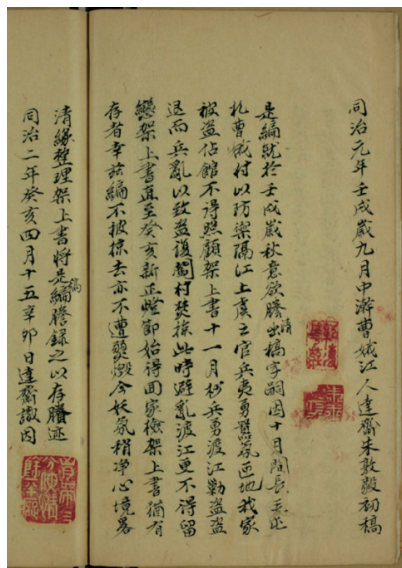 同治元年壬戌歲九月中澣曹娥江人達齋朱敦毅初稿
是編就於壬戌歲秋意欲謄出清稿字嗣因十月間長毛屯
扎曹娥村以防禦隔江上虞之官兵夷勇氛匝地我家
被盜佔館不得照顧架上書十一月杪兵勇渡江勦盜盜
退而兵亂以致盜復村焚掠此時避亂渡江更不得留
戀架上書直至癸亥新正燈節始得回家檢架上書猶有
存者幸茲編不被掠去亦不遭今妖氛稍净心境畧
清緣整理架上書將是編稿謄錄之以存謄迹
同治二年癸亥四月十五辛卯日達齋識因